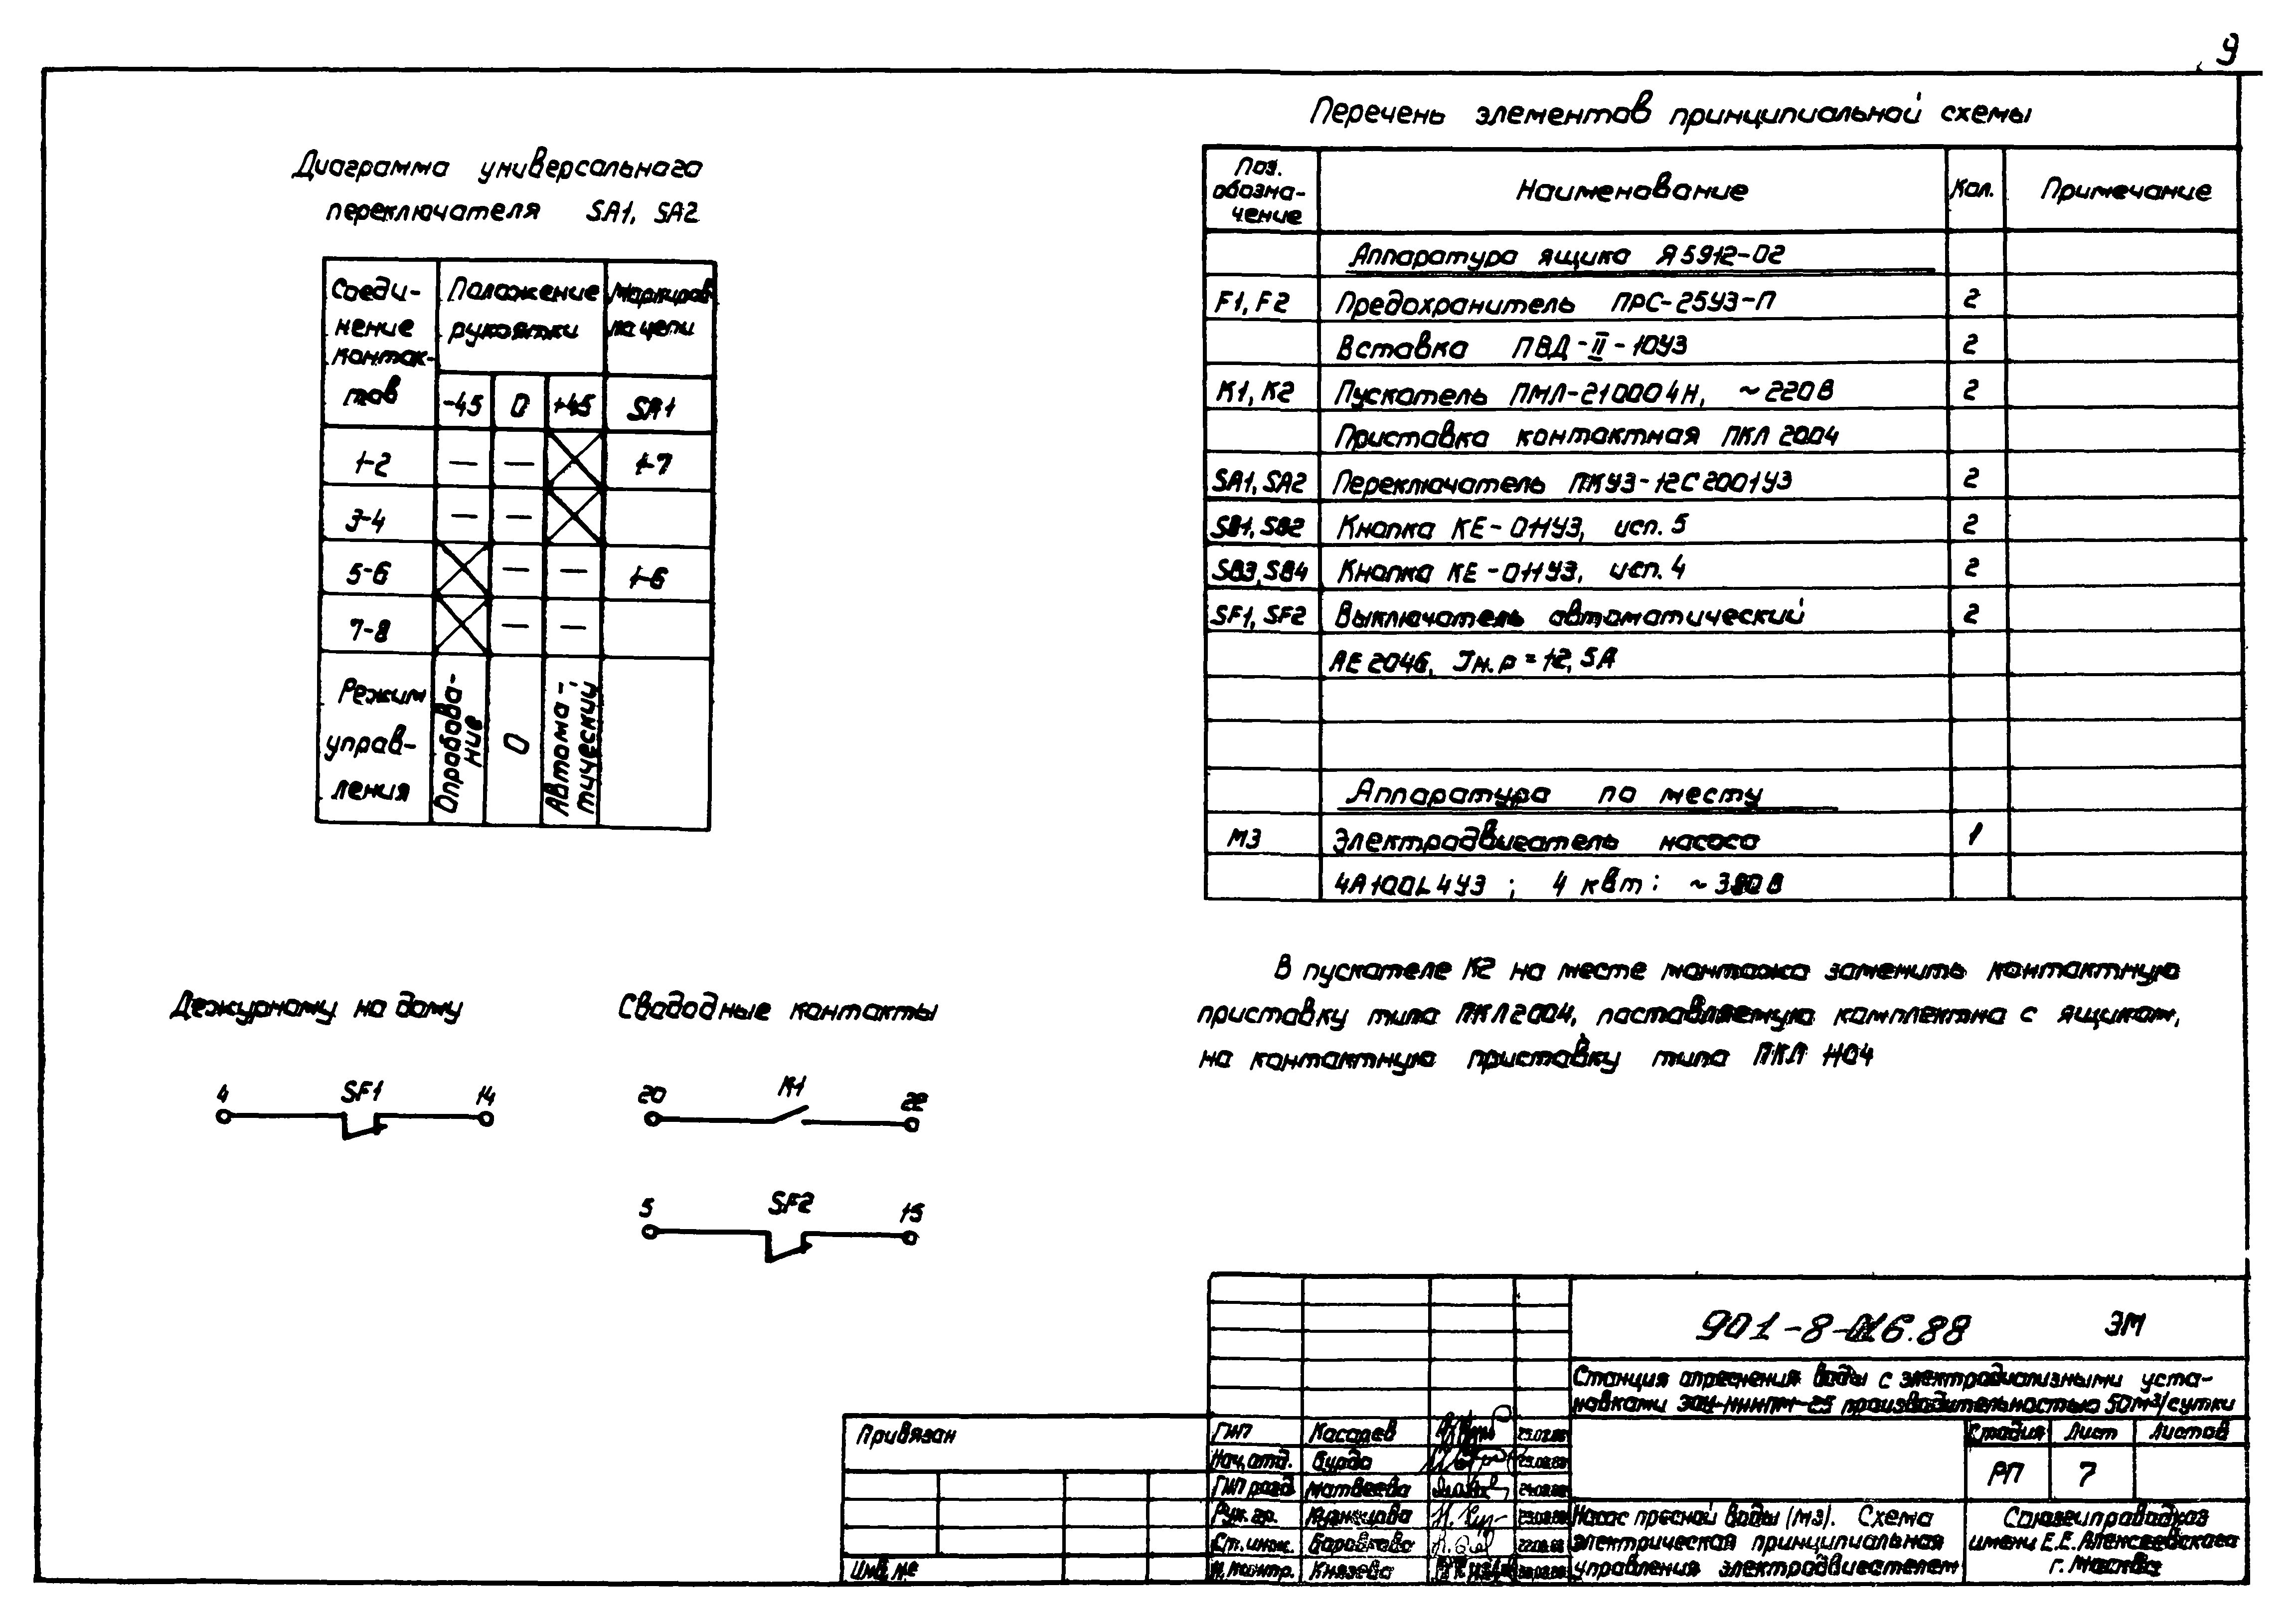 9
Диаграмма универсального
переключателя SA1, SA2
Соеди-
нение
контак-
тов
Положение
рукоятки
Маркиров
ка цепи
-45 0 +45 SA1
1-2 — — 1-7
3-4 — —
5-6 — — 1-6
7-8 — —
Режим
управ-
ления
Опробова-
ние
0
Автома-
тический
Перечень элементов принципиальной схемы
Поз.
обозна-
чение
Наименование
Кол.
Примечание
Аппаратура ящика Я5912-02
F1, F2 Предохранитель ПРС-25У3-П 2
Вставка ПВД-II-10У3 2
К1, К2 Пускатель ПМЛ-210004Н, ~220В 2
Приставка контактная ПКЛ 2004
SA1, SA2 Переключатель ПКУ3-12С2001У3 2
SB1, SB2 Кнопка КЕ-011У3, исп. 5 2
SB3, SB4 Кнопка КЕ-011У3, исп. 4 2
SF1, SF2 Выключатель автоматический 2
АЕ2046, Iн.р=12,5А
Аппаратура по месту
М3 Электродвигатель насоса 1
4А100L4У3 ; 4 квт ; ~380В
В пускателе К2 на месте монтажа заменить контактную
приставку типа ПКЛ2004, поставляемую комплектно с ящиком,
на контактную приставку типа ПКЛ 1104
Дежурному на дому
4 SF1 14
Свободные контакты
20 К1 22
5 SF2 15
901-8-016.88 ЭМ
Станция опреснения воды с электродиализными уста-
новками ЭОУ-НИИПМ-25 производительностью 50м³/сутки
Привязан
Инв.№
ГИП Касарев
Нач.отд. Бурда
ГИП разд Матвеева
Рук.гр. Кузнецова
Ст.инж. Боровкова
Н.контр. Князева
Стадия Лист Листов
РП 7
Насос пресной воды (М3). Схема
электрическая принципиальная
управления электродвигателем
Союзгипроводхоз
имени Е.Е.Алексеевского
г. Москва